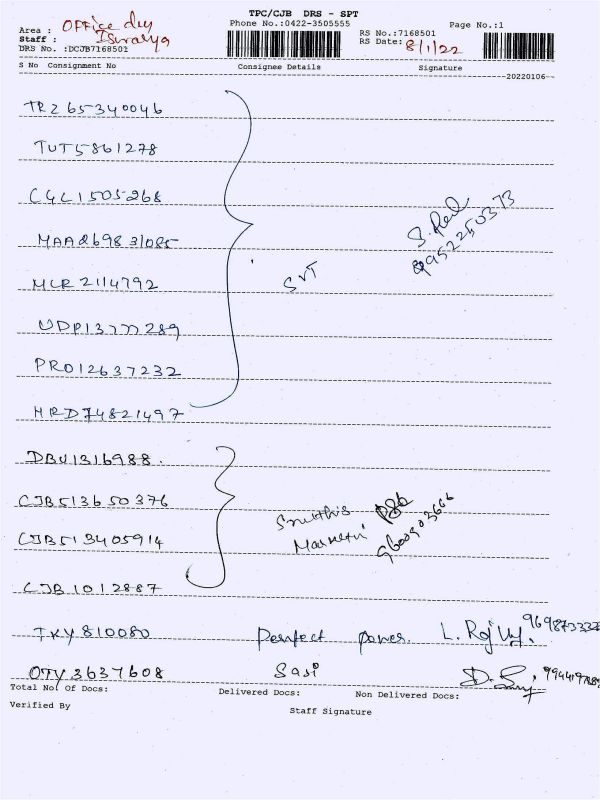 TPC/CJB DRS - SPT
Phone No.:0422-3505555
Page No.:1
Area : Office dly
Staff :
DRS No. :DCJB7168501
RS No.:7168501
RS Date: 8/1/22
S No Consignment No Consignee Details Signature
20220106
TRZ 65340046
TUT5861278
CGL1505268
MAA269831085
MLR2114792
UDP13777289
PRD12637232
HRD74821497
SVT
9952250373
DBU1316988.
CJB513650376
CJB513405914
CJB1012887
TKY810080 Perfect power.
OTY3637608 Sasi
Total No Of Docs: Delivered Docs: Non Delivered Docs:
Verified By Staff Signature